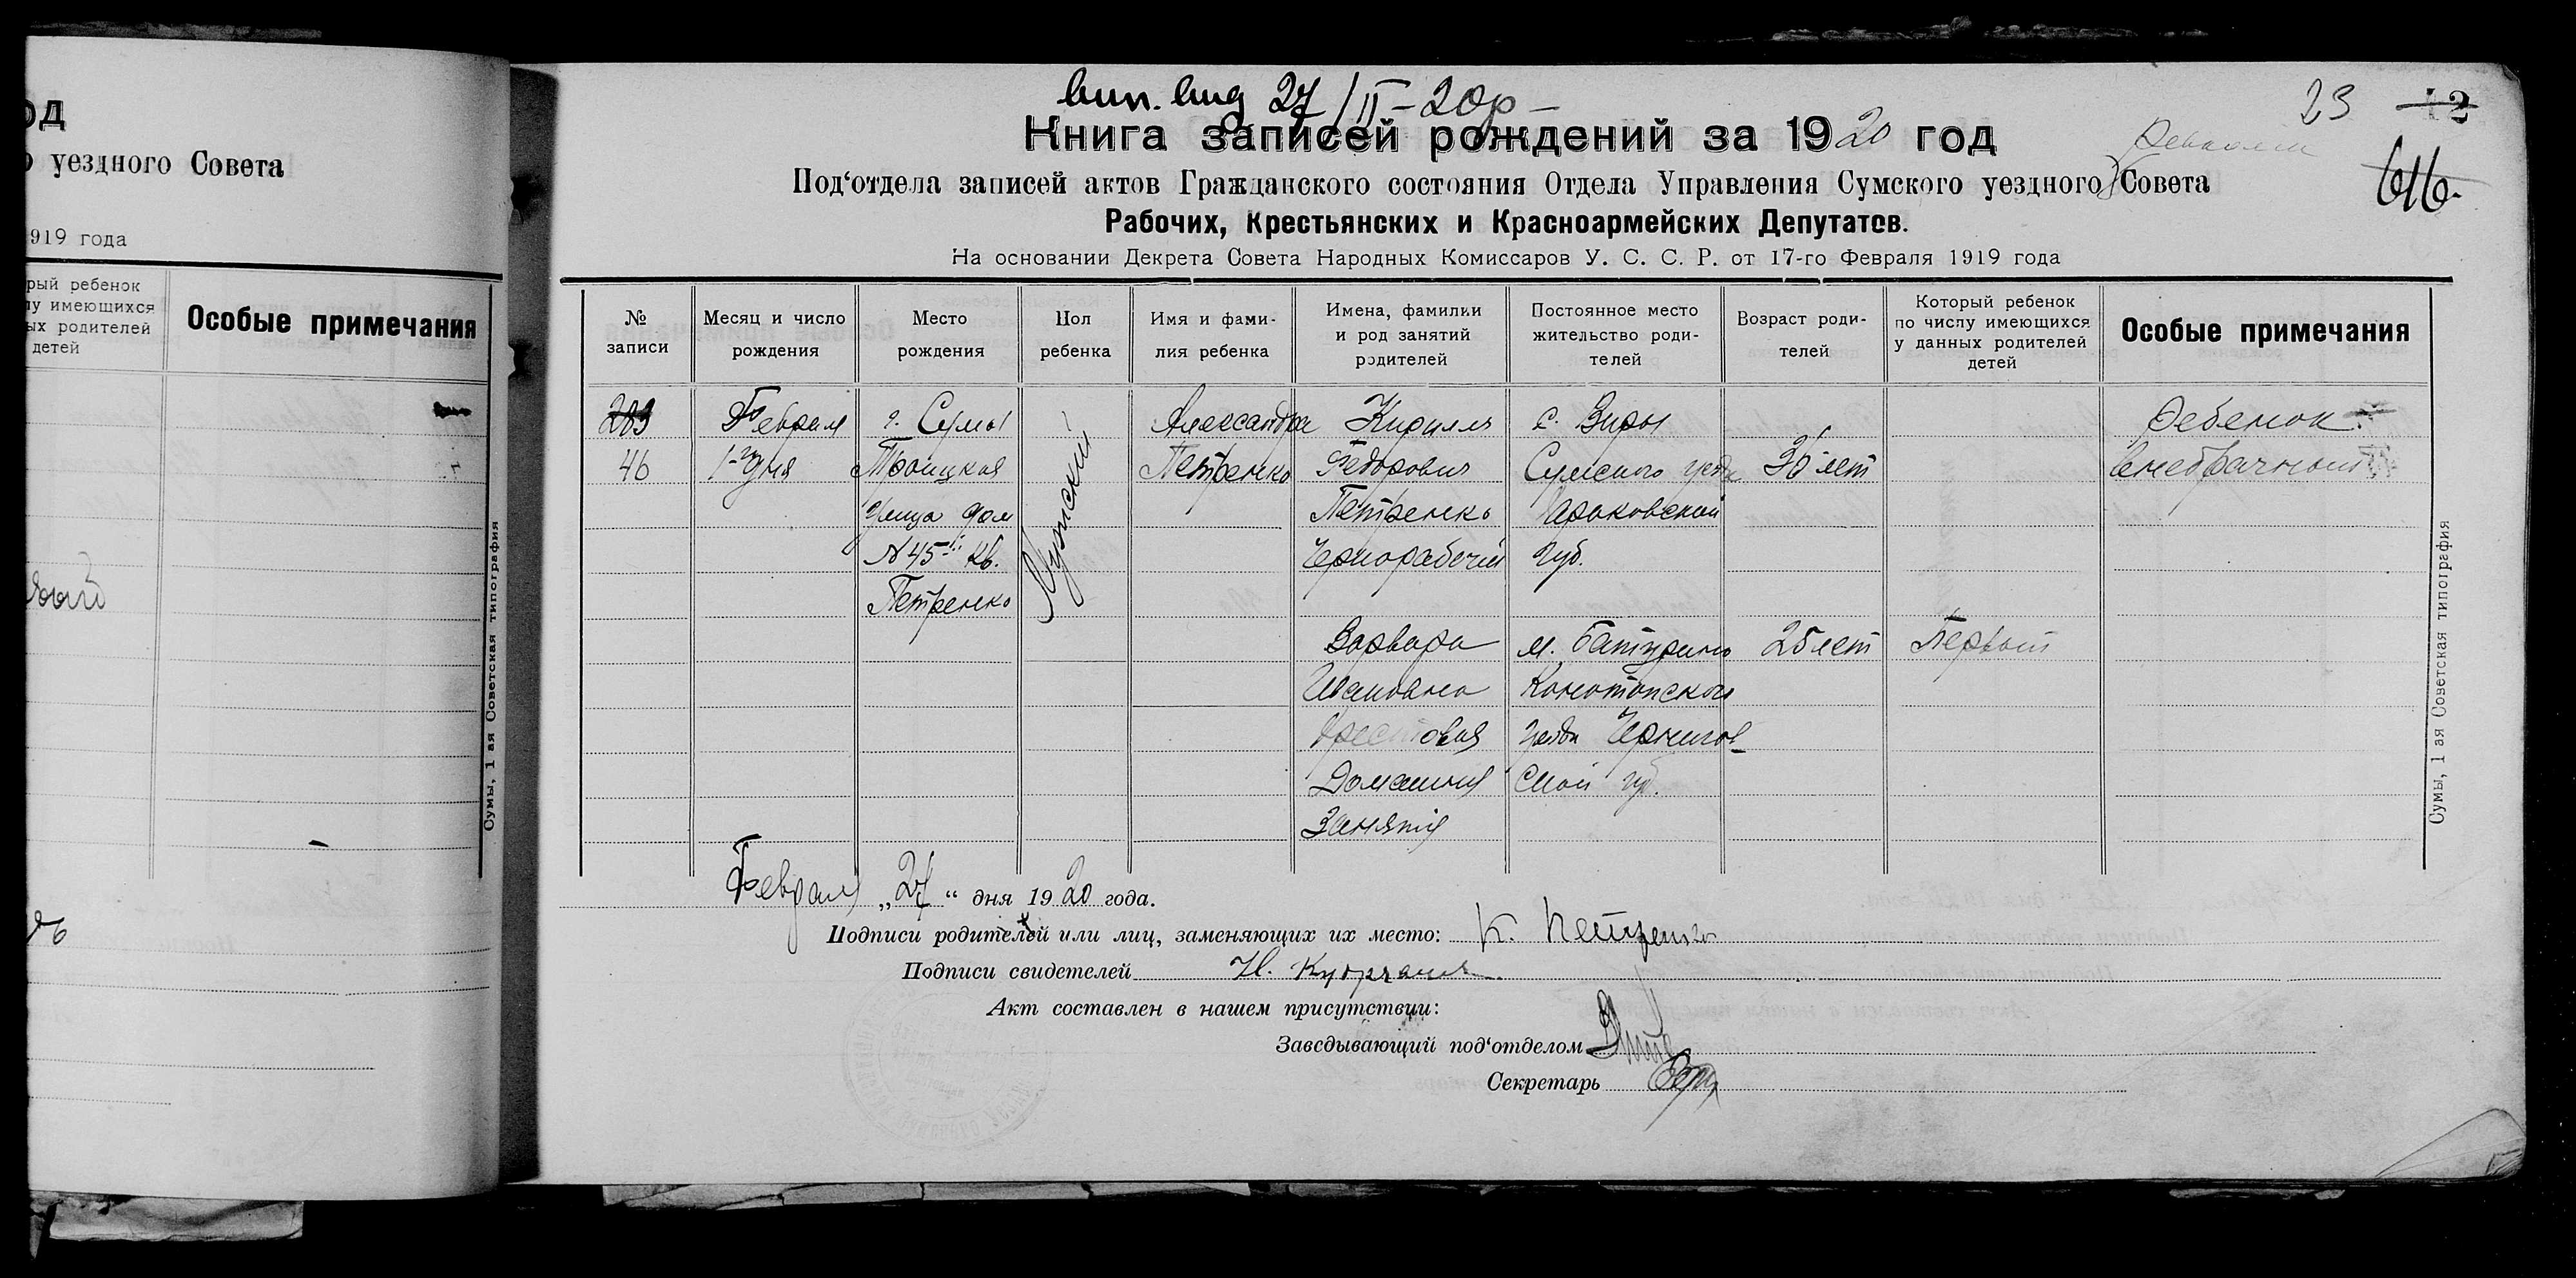 од
уездного Совета
919 года
рый ребенок
у имеющихся
ых родителей
детей
Особые примечания
Сумы, 1 ая Советская типография
вип. вид 27/II-20р-
23
12
Книга записей рождений за 1920 год
Под‘отдела записей актов Гражданского состояния Отдела Управления Сумского уездного Совета
Рабочих, Крестьянских и Красноармейских Депутатов.
На основании Декрета Совета Народных Комиссаров У. С. С. Р. от 17-го Февраля 1919 года
№ записи
Месяц и число рождения
Место рождения
Пол ребенка
Имя и фами-
лия ребенка
Имена, фамилии
и род занятий
родителей
Постоянное место
жительство роди-
телей
Возраст роди-
телей
Который ребенок
по числу имеющихся
у данных родителей
детей
Особые примечания
46
Февраля
1-го дня
г. Сумы
Троицкая
Улица дом
№ 45 кв.
Петренко
Мужский
Александра
Петренко
Кирилл
Федорович
Петренко
Чернорабочий
с. Виры
Сумского уезда
Харьковской
губ.
30 лет
Ребенок
внебрачный
Варвара
Ивановна
Домашния
Занятия
м. Батурино
Конотопского
уезда Чернигов-
ской губ.
25 лет
Первый
Февраля „27“ дня 1920 года.
Подписи родителей или лиц, заменяющих их место: К. Петренко
Подписи свидетелей Н.
Акт составлен в нашем присутствии:
Заведывающий под‘отделом
Секретарь
Сумы, 1 ая Советская типография